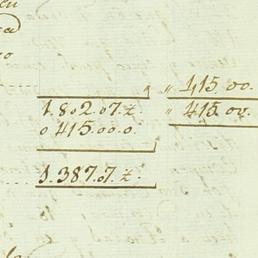 " 415.00.
1.802.07.½. " 415.00.
0 415.00.0.
1.387.07.½.